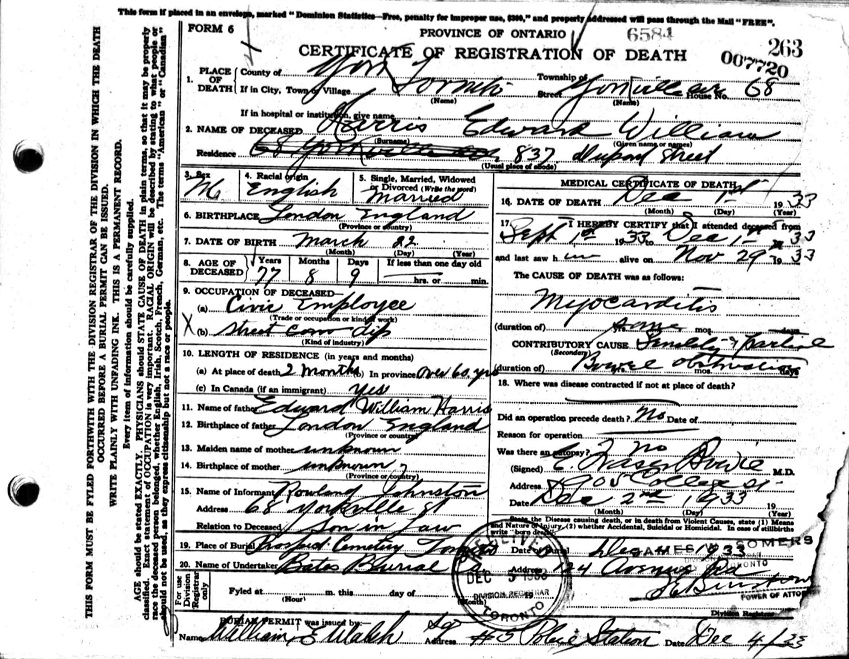 This form if placed in an envelope, marked "Dominion Statistics—Free, penalty for improper use, $300," and property addressed will pass through the Mail "FREE".
FORM 6
PROVINCE OF ONTARIO 6584
263
CERTIFICATE OF REGISTRATION OF DEATH
007720
1. PLACE OF DEATH County of York Township of
If in City, Town or Village Toronto Street Yorkville Ave House No. 68
(Name) (Name)
If in hospital or institution, give name
2. NAME OF DECEASED Harris Edward William
(Surname) (Given name or names)
Residence 68 Yorkville 837 Dupont Street
(Usual place of abode)
3. Sex M
4. Racial origin English
5. Single, Married, Widowed or Divorced (Write the word) Married
6. BIRTHPLACE London England
(Province or country)
7. DATE OF BIRTH March 22
(Month) (Day) (Year)
8. AGE OF DECEASED Years 77 Months 8 Days 9 If less than one day old
hrs. or min.
9. OCCUPATION OF DECEASED—
(a) Civic Employee
(Trade or occupation or kind of work)
X (b) Street
(Kind of industry)
10. LENGTH OF RESIDENCE (in years and months)
(a) At place of death 2 months In province over 60 yrs
(c) In Canada (if an immigrant) yes
11. Name of father Edward William Harris
12. Birthplace of father London England
(Province or country)
13. Maiden name of mother unknown
14. Birthplace of mother unknown
(Province or country)
15. Name of Informant Rowland Johnston
Address 68 Yorkville
Relation to Deceased Son in law
MEDICAL CERTIFICATE OF DEATH
16. DATE OF DEATH Dec 1st 1933
(Month) (Day) (Year)
17. I HEREBY CERTIFY that I attended deceased from
Sept 1st 1933 to Dec 1st 1933
and last saw him alive on Nov 29 1933
The CAUSE OF DEATH was as follows:
Myocarditis
(duration of) mos. days
CONTRIBUTORY CAUSE Senility & partial
(Secondary)
(duration of) Bowel obstruction mos. days
18. Where was disease contracted if not at place of death?
Did an operation precede death? No Date of
Reason for operation
Was there an autopsy? No
(Signed) E. Fraser Bowie M.D.
Address College St
Date Dec 2nd 1933 19
(Month) (Day) (Year)
State the Disease causing death, or in death from Violent Causes, state (1) Means and Nature of Injury, (2) whether Accidental, Suicidal or Homicidal. In case of stillbirths write "born dead"
19. Place of Burial Prospect Cemetery Toronto Date of Burial Dec 1933
20. Name of Undertaker Bates Burial Co 124 Avenue Rd
JAMES SOMERS
TORONTO
POWER OF ATTORNEY
RECEIVED
DEC 5 1933
DIVISION REGISTRAR
TORONTO
For use Division Registrar only
Fyled at m. this day of 19
(Hour) (Month)
Division Registrar
BURIAL PERMIT was issued by:
Name William E Walsh Address #5 Police Station Date Dec 4/33
THIS FORM MUST BE FYLED FORTHWITH WITH THE DIVISION REGISTRAR OF THE DIVISION IN WHICH THE DEATH
OCCURRED BEFORE A BURIAL PERMIT CAN BE ISSUED.
WRITE PLAINLY WITH UNFADING INK. THIS IS A PERMANENT RECORD.
Every item of information should be carefully supplied.
AGE should be stated EXACTLY. PHYSICIANS should STATE CAUSE OF DEATH in plain terms, so that it may be properly
classified. Exact statement of OCCUPATION is very important. RACIAL ORIGIN will be described by stating to what people or
race the deceased person belonged, whether English, Irish, Scotch, French, German, etc. The terms "American" or "Canadian"
should not be used, as they express citizenship but not a race or people.